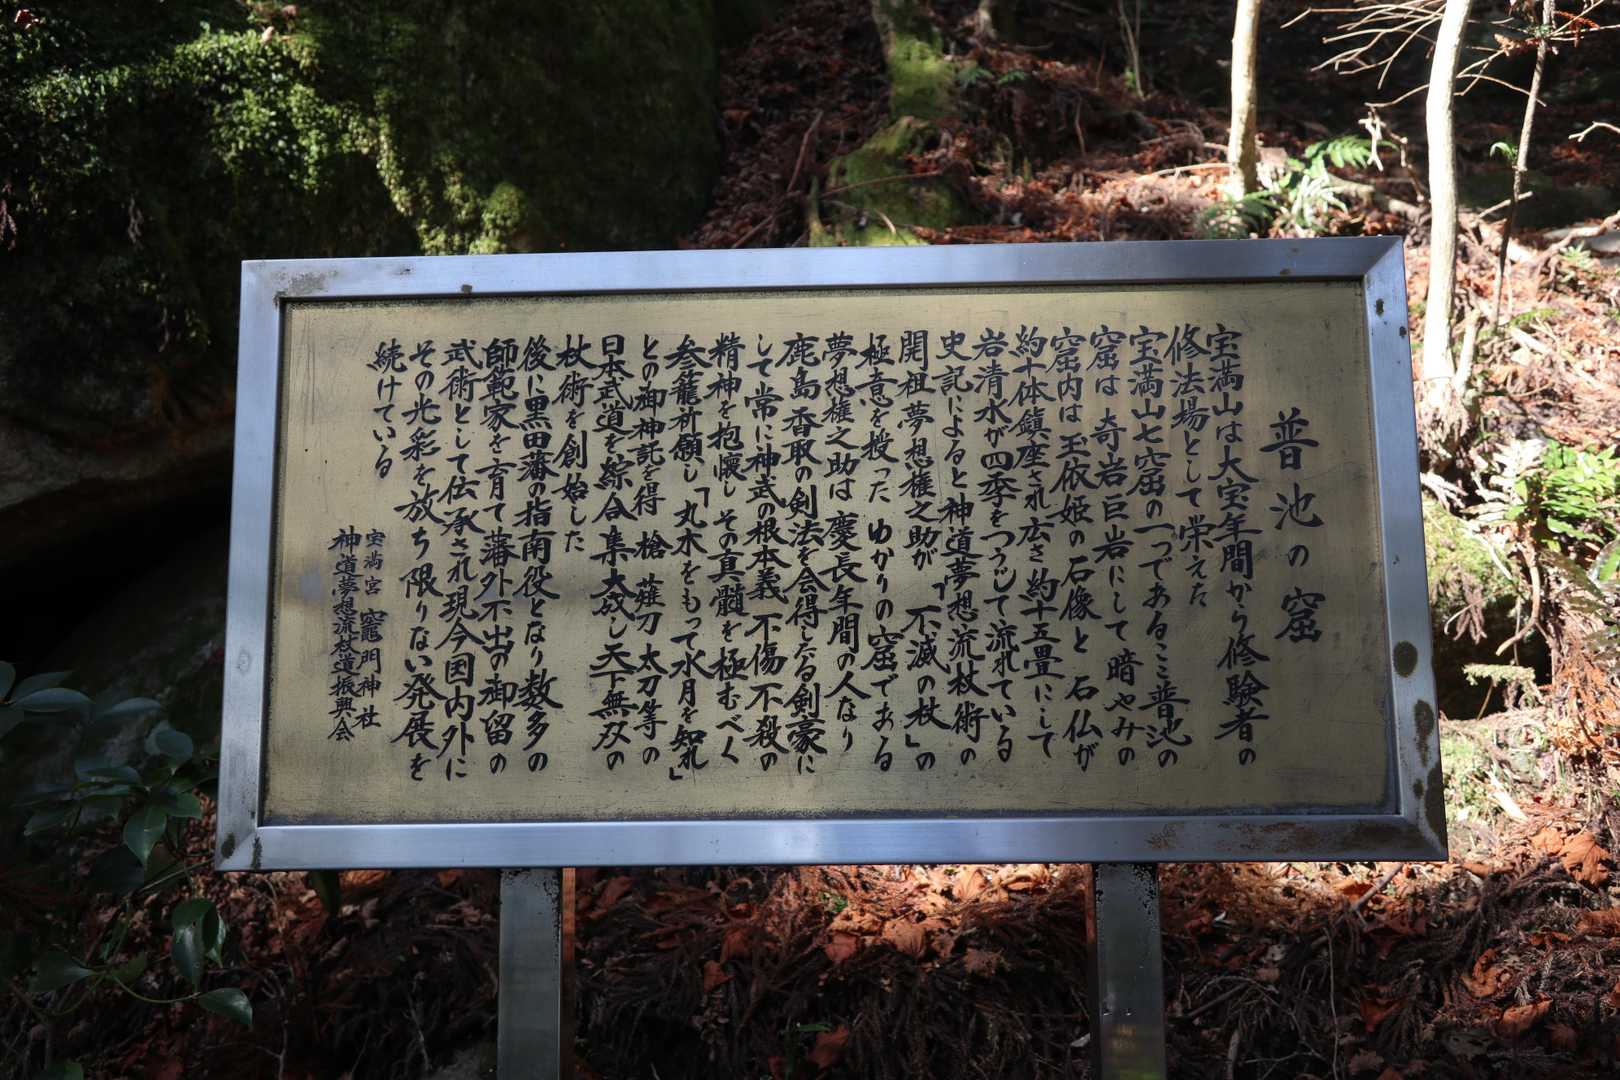 普池の窟
宝満山は大宝年間から修験者の
修法場として栄えた
宝満山七窟の一つであるここ普池の
窟は 奇岩巨岩にして暗やみの
窟内は玉依姫の石像と 石仏が
約十体鎮座され広さ約十五畳にして
岩清水が四季をつうじて流れている
史記によると 神道夢想流杖術の
開祖夢想権之助が「不滅の杖」の
極意を授った ゆかりの窟である
夢想権之助は 慶長年間の人なり
鹿島香取の剣法を会得したる剣豪に
して常に神武の根本義 不傷不殺の
精神を抱懐し その真髄を極むべく
参籠祈願し「丸木をもって水月を知れ」
との御神託を得 槍 薙刀 太刀等の
日本武道を綜合集大成し天下無双の
杖術を創始した
後に黒田藩の指南役となり数多の
師範家を育て藩外不出の御留の
武術として伝承され現今国内外に
その光彩を放ち限りない発展を
続けている
宝満宮 竈門神社
神道夢想流杖道振興会